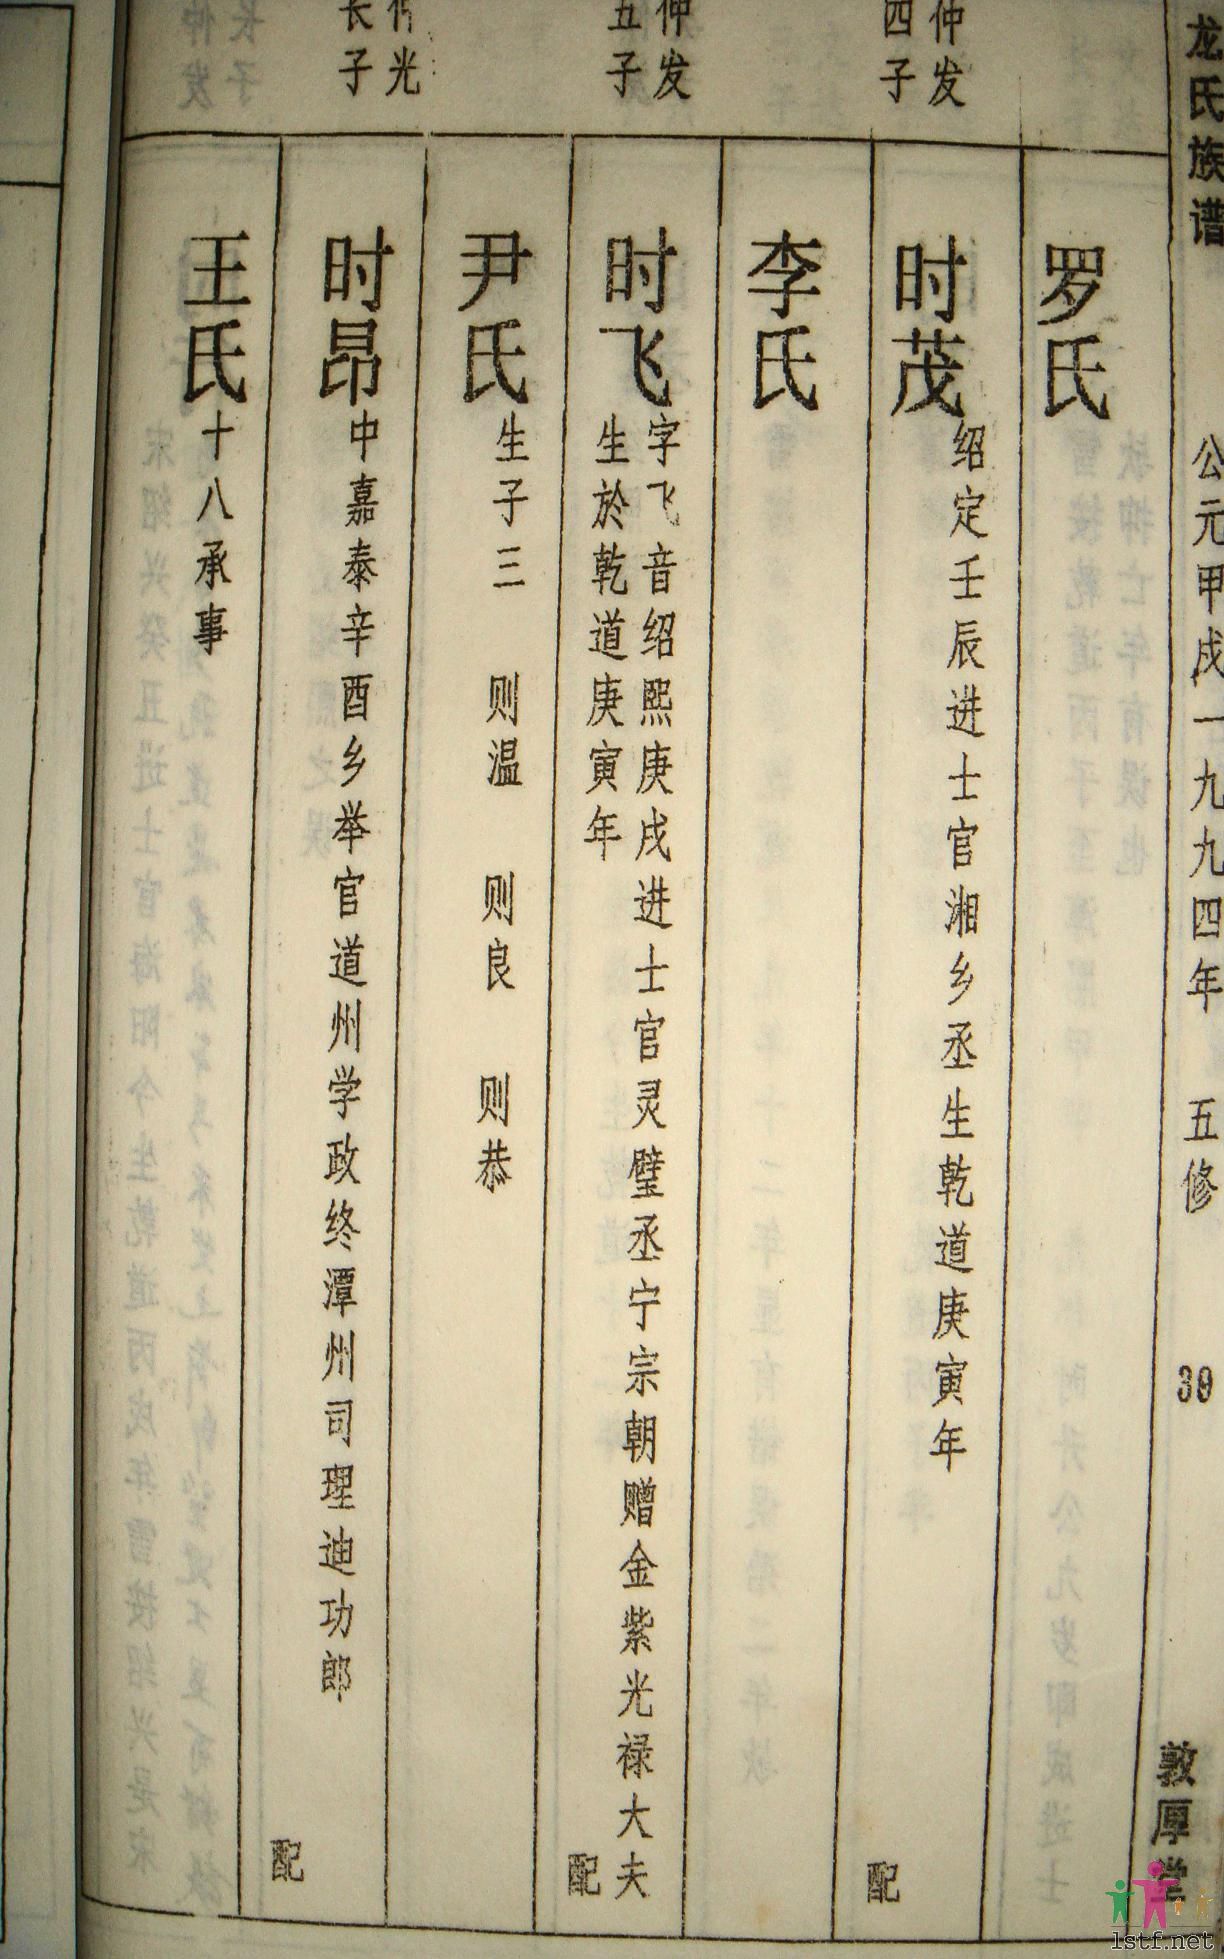 龙氏族谱 公元甲戌一九九四年 五修 39 敦厚堂
罗氏
仲发
四子
时茂 绍定壬辰进士官湘乡丞生乾道庚寅年 配
李氏
仲发
五子
时飞 字飞音绍熙庚戌进士官灵璧丞宁宗朝赠金紫光禄大夫
生於乾道庚寅年 配
尹氏 生子三 则温 则良 则恭
仲光
长子
时昂 中嘉泰辛酉乡举官道州学政终潭州司理迪功郎 配
王氏 十八承事
lstf.net